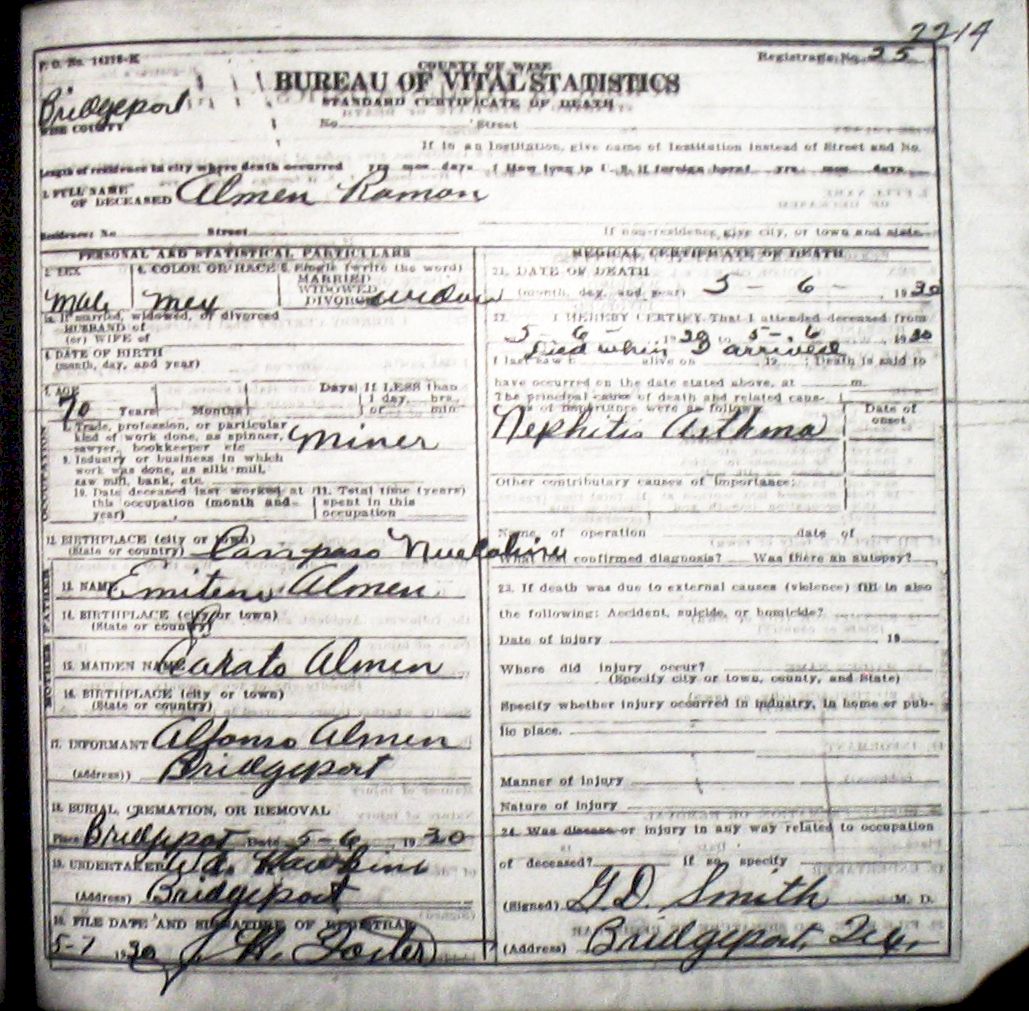 2214
F. O. No. 14298-K
COUNTY OF WISE
Registrar's No. 25
BUREAU OF VITAL STATISTICS
STANDARD CERTIFICATE OF DEATH
Bridgeport
WISE COUNTY
No. Street
If in an Institution, give name of Institution instead of Street and No.
Length of residence in city where death occurred yrs mos days How long in U. S. if foreign born? yrs. mos days
1. FULL NAME OF DECEASED Almen Ramon
Residence: No Street If non-residence give city, or town and state.
PERSONAL AND STATISTICAL PARTICULARS
3. SEX Male
4. COLOR OR RACE Mex
5. Single (write the word)
MARRIED
WIDOWED
DIVORCED
5a. If married, widowed, or divorced
HUSBAND of
(or) WIFE of
6. DATE OF BIRTH
(month, day, and year)
7. AGE
70 Years Months Days If LESS than
1 day, hrs.
or min.
OCCUPATION
8. Trade, profession, or particular
kind of work done, as spinner,
sawyer, bookkeeper etc Miner
9. Industry or business in which
work was done, as silk mill,
saw mill, bank, etc.
10. Date deceased last worked at
this occupation (month and
year)
11. Total time (years)
spent in this
occupation
12. BIRTHPLACE (city or town)
(State or country)
FATHER
13. NAME Almen
14. BIRTHPLACE (city or town)
(State or country)
MOTHER
15. MAIDEN NAME Almen
16. BIRTHPLACE (city or town)
(State or country)
17. INFORMANT Alfonso Almen
(Address) Bridgeport
18. BURIAL, CREMATION, OR REMOVAL
Place Bridgeport Date 5-6, 1930
19. UNDERTAKER Hawkins
(Address) Bridgeport
20. FILE DATE AND SIGNATURE OF REGISTRAR
5-7 1930 J. H. Foster
MEDICAL CERTIFICATE OF DEATH
21. DATE OF DEATH
(month, day, and year) 5 - 6 - , 1930
22. I HEREBY CERTIFY That I attended deceased from
5 - 6 - 1930 to 5 - 6 1930
Died when I arrived
I last saw h alive on , 19 . Death is said to
have occurred on the date stated above, at m.
The principal cause of death and related caus-
es of importance were as follows
Date of
onset
Nephitis Asthma
Other contributary causes of importance:
Name of operation date of
What test confirmed diagnosis? Was there an autopsy?
23. If death was due to external causes (violence) fill in also
the following: Accident, suicide, or homicide?
Date of injury , 19
Where did injury occur?
(Specify city or town, county, and State)
Specify whether injury occurred in industry, in home or pub-
lic place.
Manner of injury
Nature of injury
24. Was disease or injury in any way related to occupation
of deceased? if so, specify
(Signed) G. D. Smith M. D.
(Address) Bridgeport, Tex.